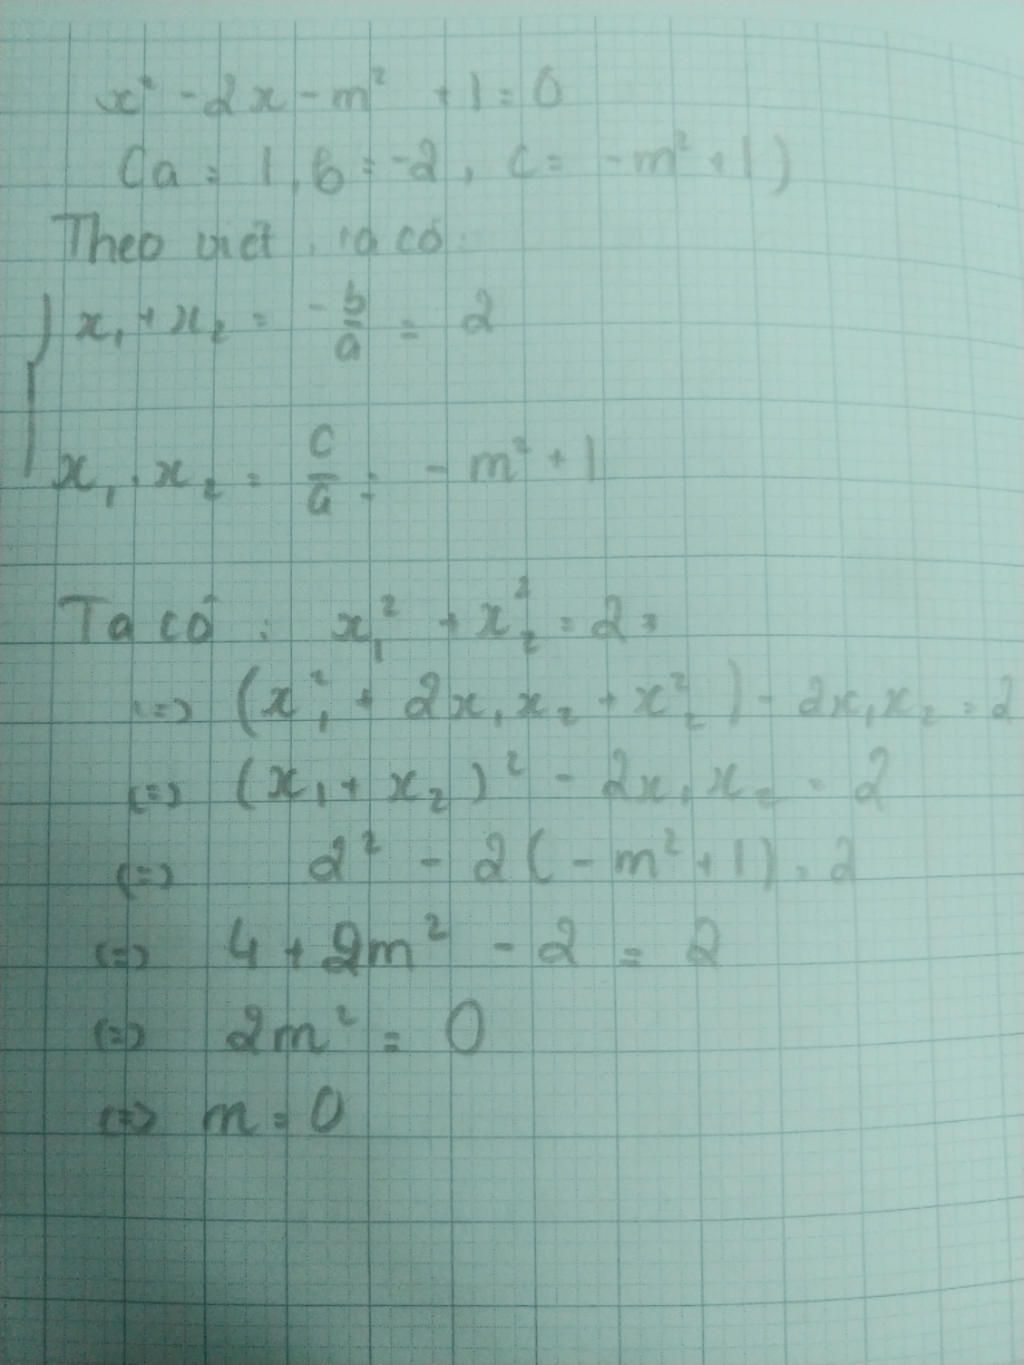 x² - 2x - m² + 1 = 0
(a = 1, b = -2, c = -m² + 1)
Theo viet, ta có:
x₁ + x₂ = -b/a = 2
x₁ . x₂ = c/a = -m² + 1
Ta có: x₁² + x₂² = 2
(=) (x₁² + 2x₁x₂ + x₂²) - 2x₁x₂ = 2
(=) (x₁ + x₂)² - 2x₁x₂ = 2
(=) 2² - 2(-m² + 1) = 2
(=) 4 + 2m² - 2 = 2
(=) 2m² = 0
(=) m = 0